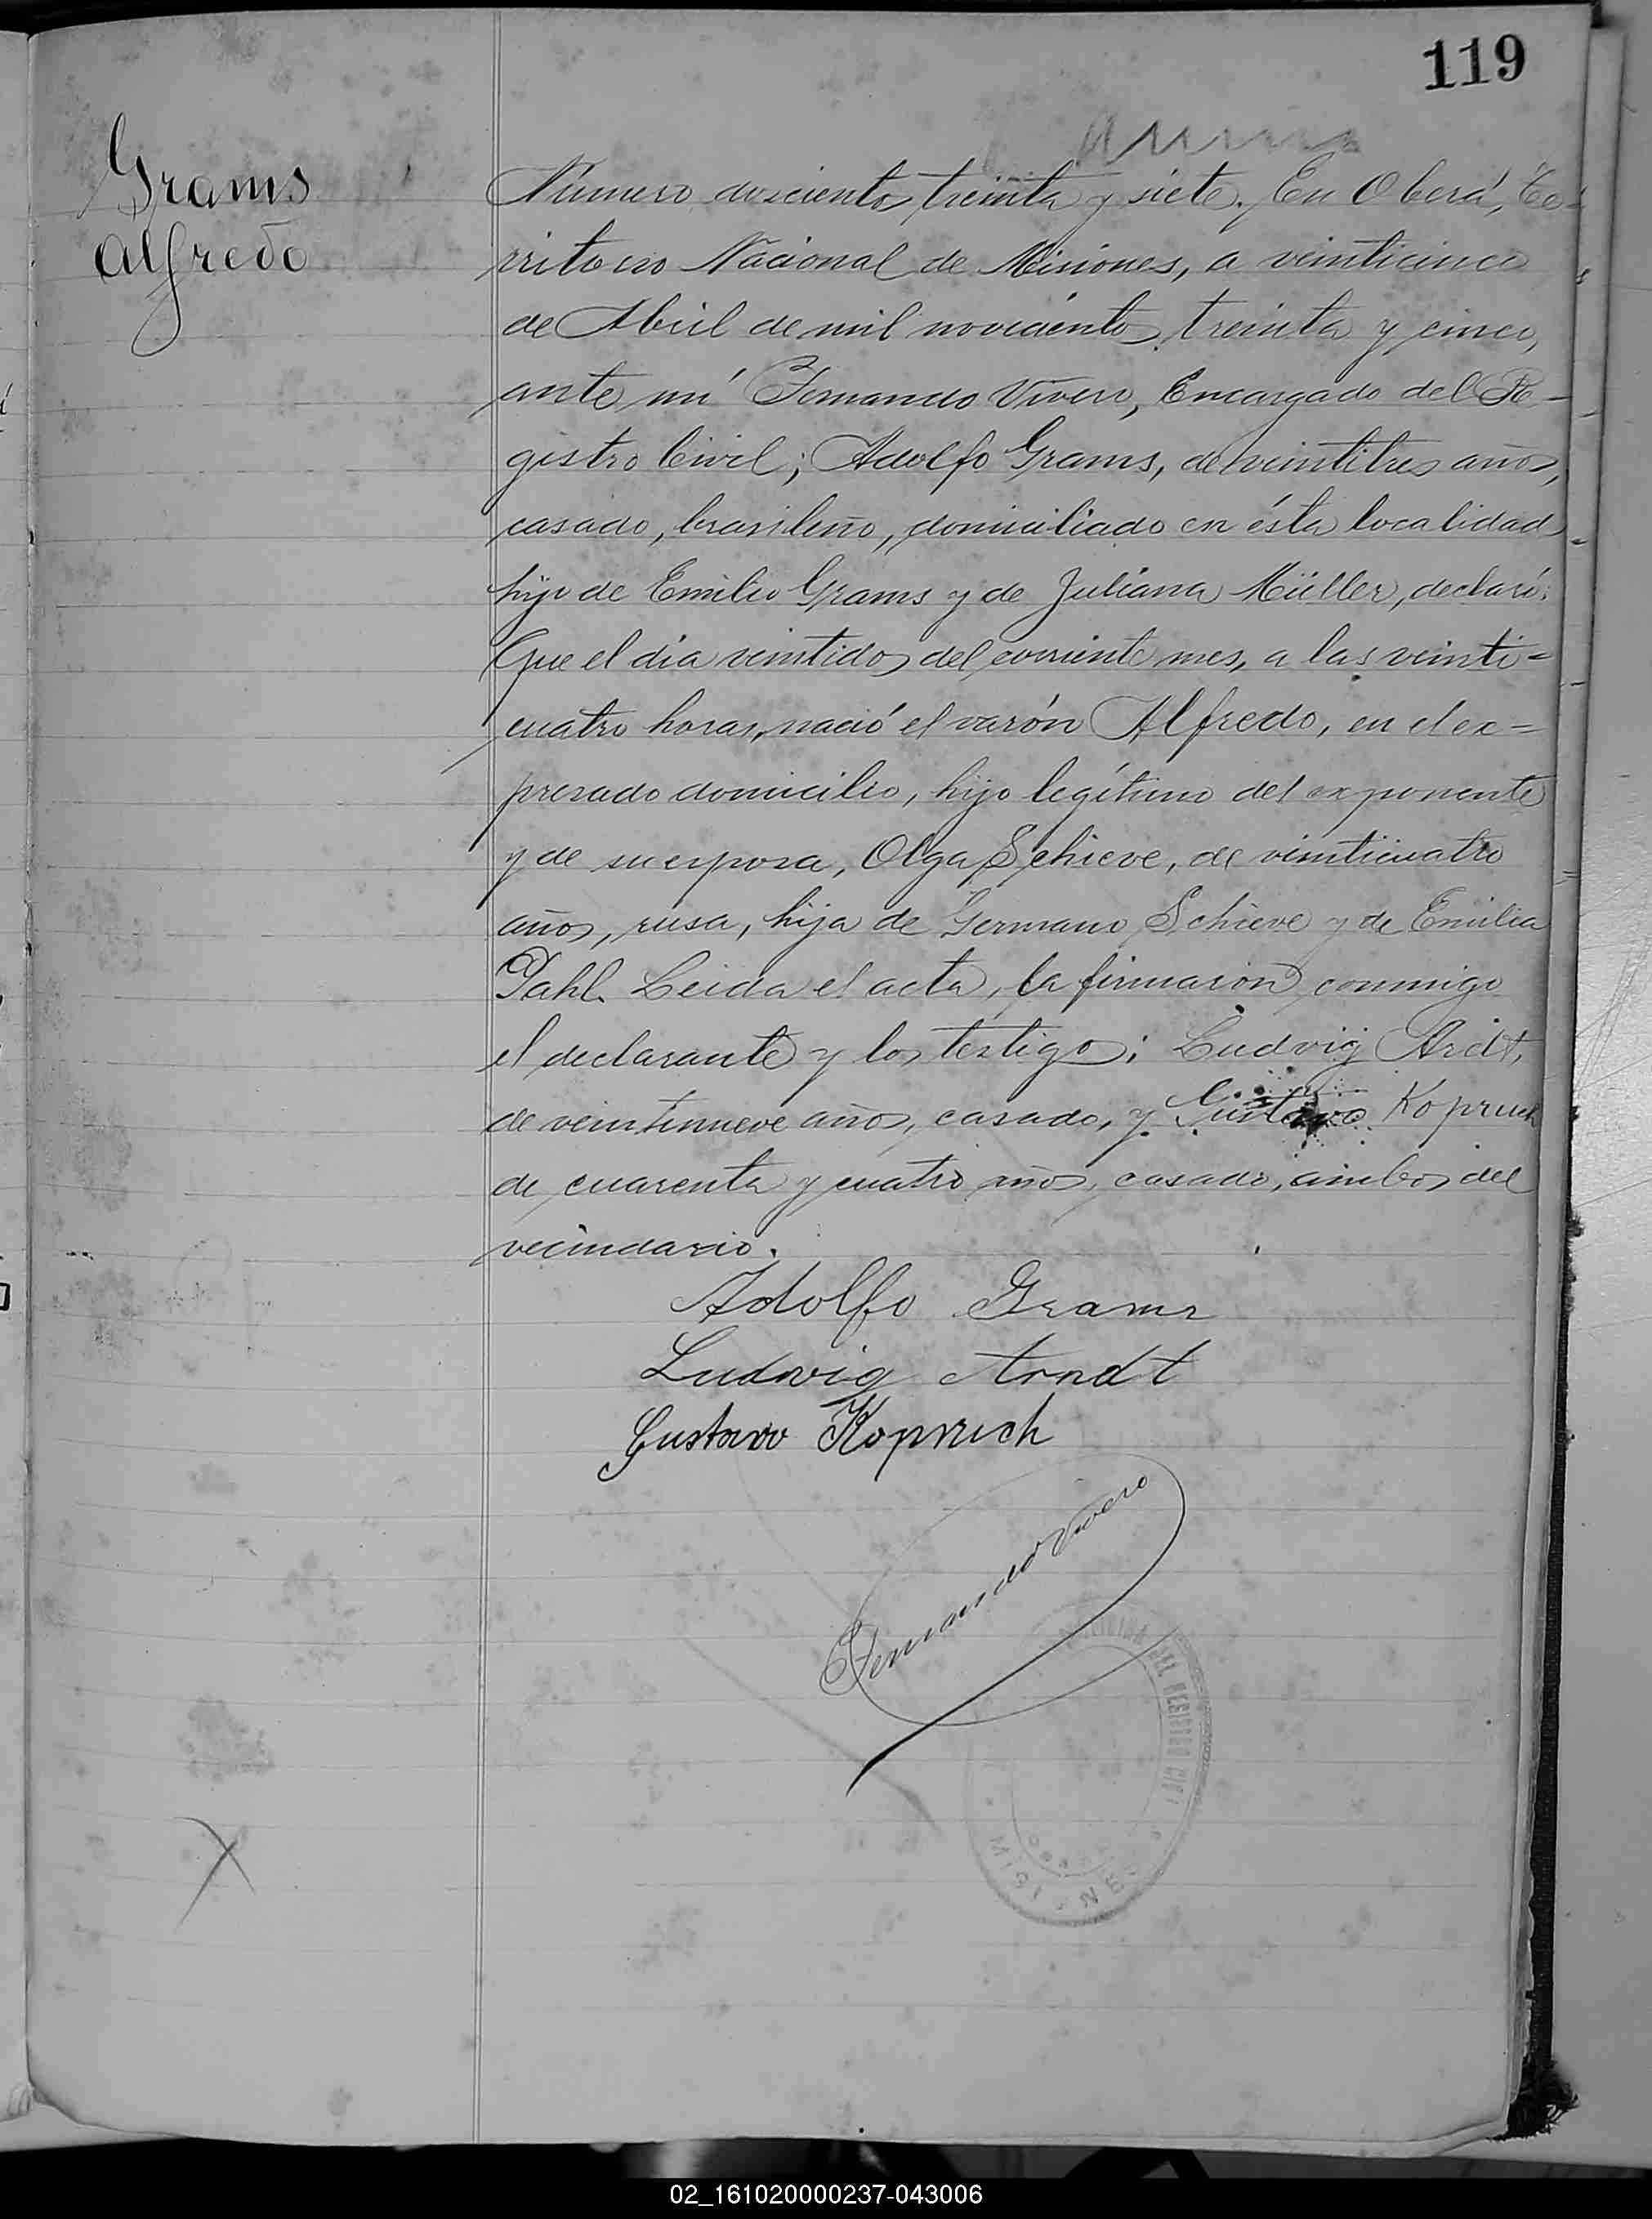 119
Grams
Alfredo
Número doscientos treinta y siete. En Oberá, Te-
rritorio Nacional de Misiones, a veinticinco
de Abril de mil novecientos treinta y cinco,
ante mí Fernando Vivero, Encargado del Re-
gistro Civil; Adolfo Grams, de veintitres años,
casado, brasileño, domiciliado en ésta localidad
hijo de Emilio Grams y de Juliana Müller, declaró:
Que el día veintidos del corriente mes, a las veinti=
cuatro horas, nació el varón Alfredo, en el ex=
presado domicilio, hijo legítimo del exponente
y de su esposa, Olga Schieve, de veinticuatro
años, rusa, hija de Germano Schieve y de Emilia
Pahl. Leida el acta, la firmaron conmigo
el declarante y los testigos; Ludvig Ardt,
de veintinueve años, casado, y Gustavo Koprich
de cuarenta y cuatro años, casado, ambos del
vecindario.
Adolfo Grams
Ludwig Arndt
Gustavo Koprich
Fernando Vivero
DEL REGISTRO CIVI
02_161020000237-043006